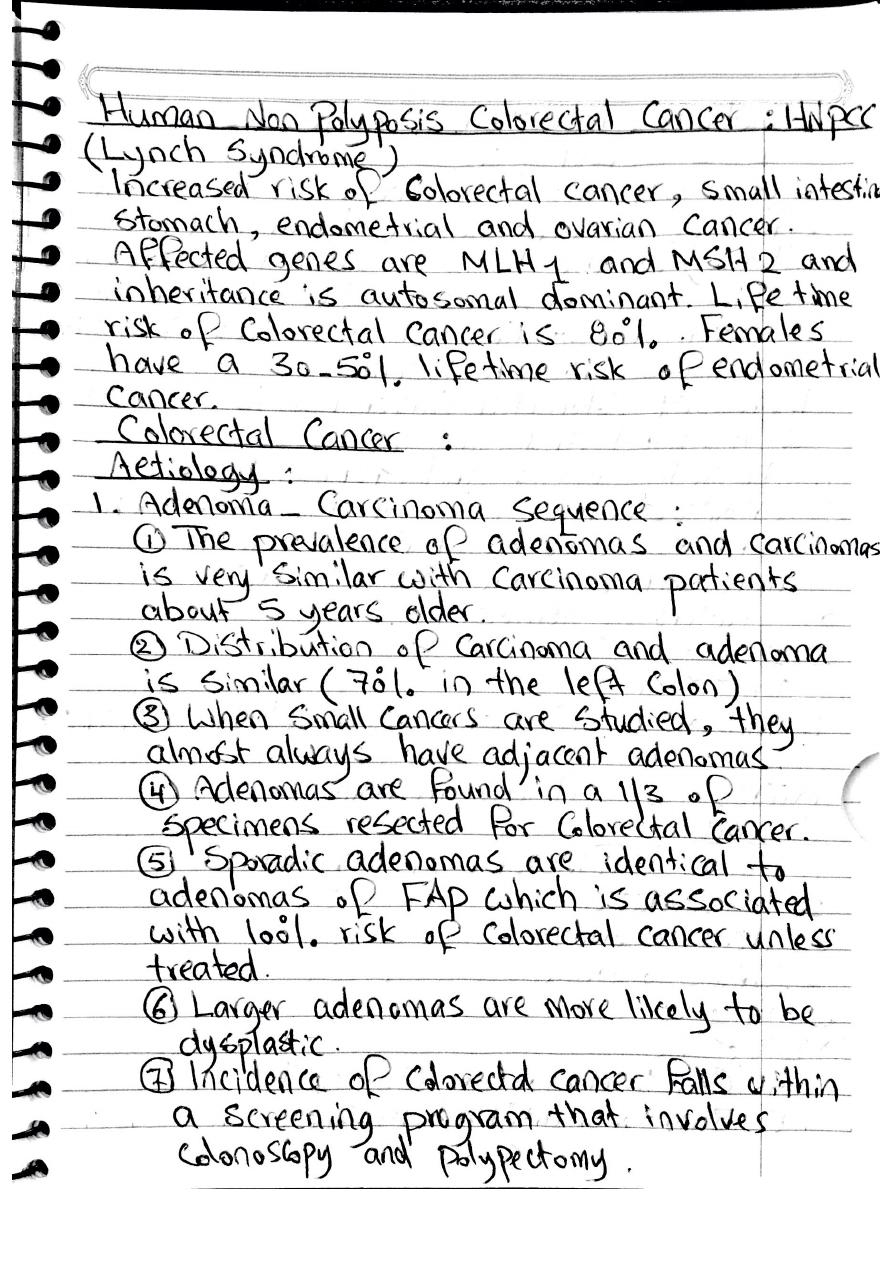 Human Non Polyposis Colorectal Cancer : HNPCC
(Lynch Syndrome)
Increased risk of Colorectal cancer, small intestin
Stomach, endometrial and ovarian Cancer.
Affected genes are MLH1 and MSH2 and
inheritance is autosomal dominant. Life time
risk of Colorectal Cancer is 80%. Females
have a 30-50%. lifetime risk of endometrial
Cancer.
Colorectal Cancer :
Aetiology :
1. Adenoma - Carcinoma Sequence :
① The prevalence of adenomas and carcinomas
is very Similar with Carcinoma patients
about 5 years older.
② Distribution of Carcinoma and adenoma
is Similar (70%. in the left Colon)
③ When Small Cancers are Studied, they
almost always have adjacent adenomas
④ Adenomas are found in a 1/3 of
Specimens resected for Colorectal Cancer.
⑤ Sporadic adenomas are identical to
adenomas of FAP which is associated
with 100%. risk of Colorectal cancer unless
treated.
⑥ Larger adenomas are more likely to be
dysplastic.
⑦ Incidence of Colorectal cancer falls within
a Screening program that involves
Colonoscopy and polypectomy.